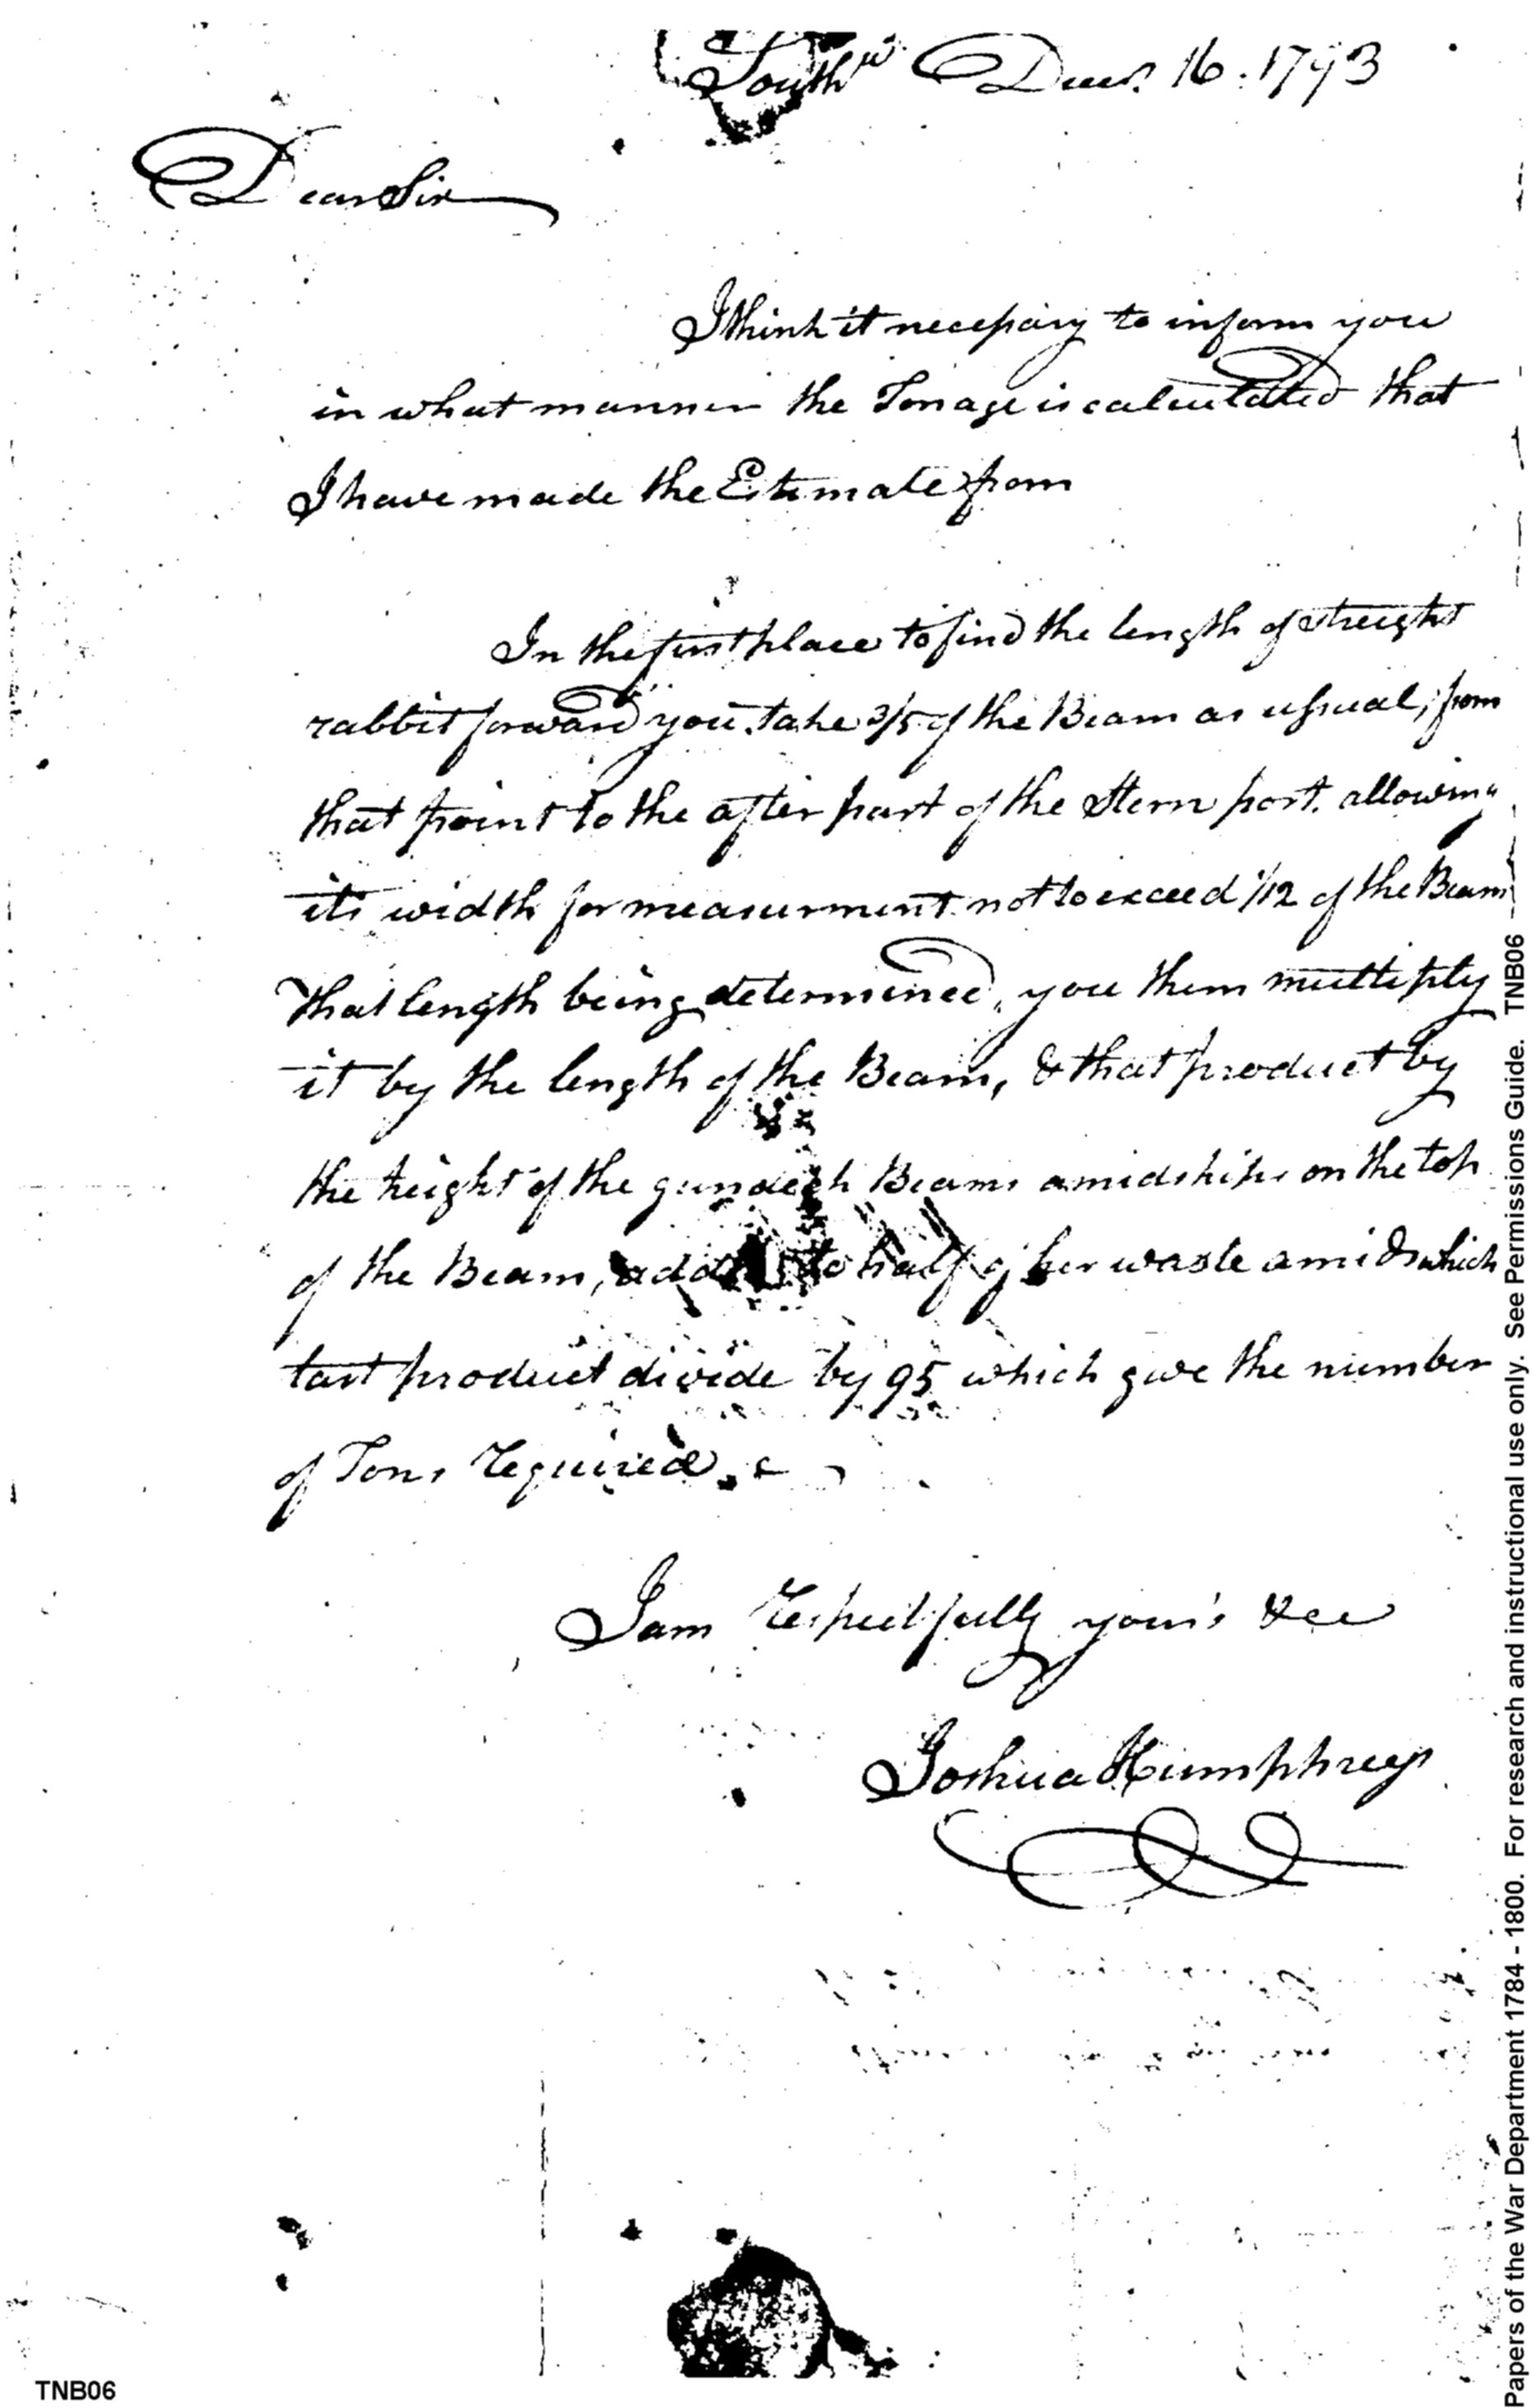 Southw Decr. 16. 1793
Dear Sir
I think it necessary to inform you
in what manner the Tonage is calculated that
I have made the Estimate from
In the first place to find the length of streight
rabbit forward you take 3/5 of the Beam as usual, from
that point to the after part of the Stern post. allowing
its width for measurment not to exceed 1/12 of the Beam
That length being determined, you them multiply
it by the length of the Beam, & that product by
the height of the gundeck Beams amidships on the top
of the Beam, to half of her waste amids which
last product divide by 95 which give the number
of Tons required.
I am respectfully your's &ce
Joshua Humphreys
TNB06
Papers of the War Department 1784 - 1800. For research and instructional use only. See Permissions Guide. TNB06